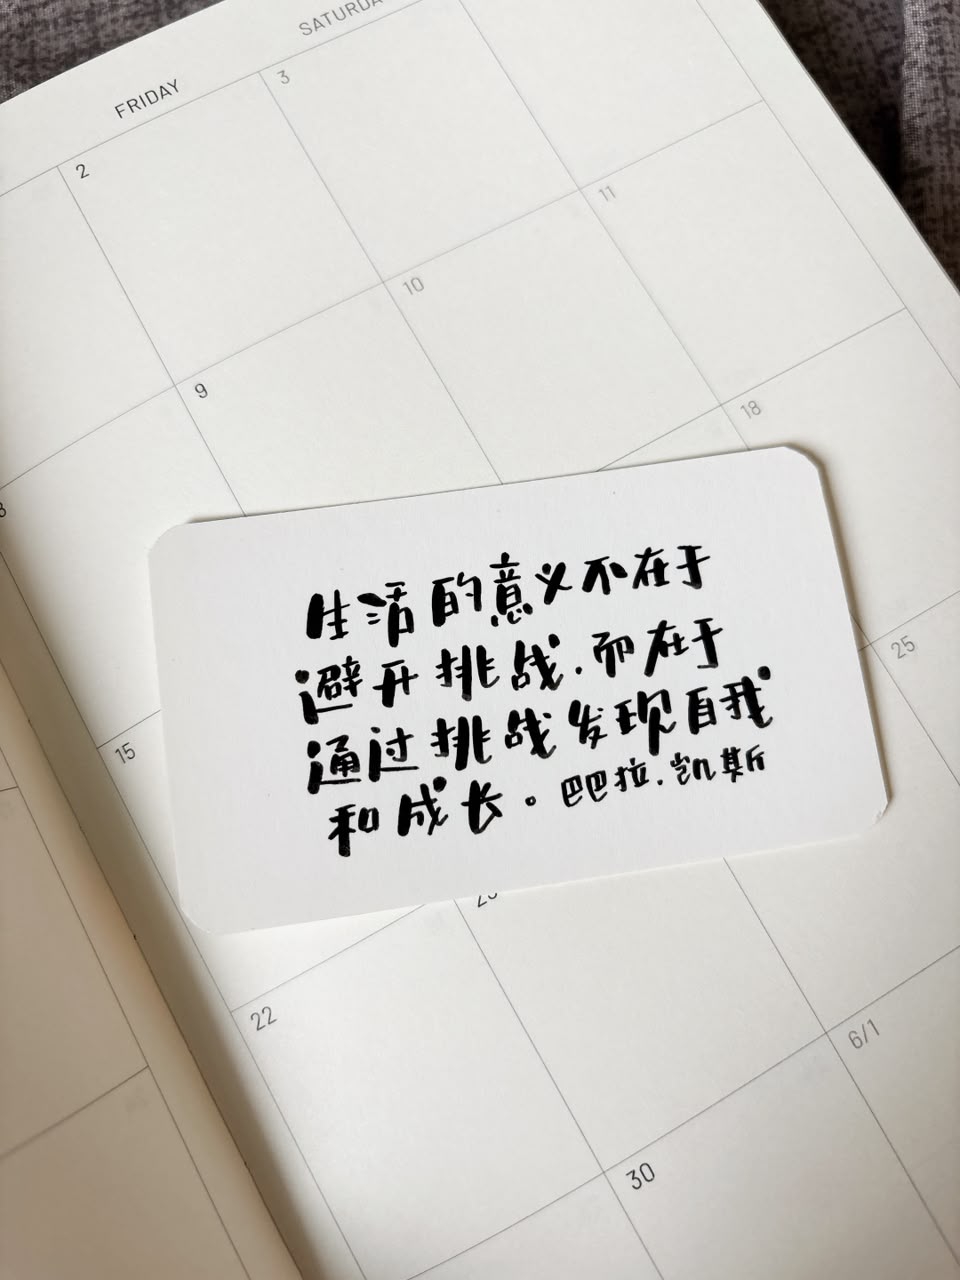 SATURDA
FRIDAY
3
2
11
10
9
18
25
15
22
6/1
30
生活的意义不在于
避开挑战.而在于
通过挑战发现自我
和成长。巴巴拉.凯斯